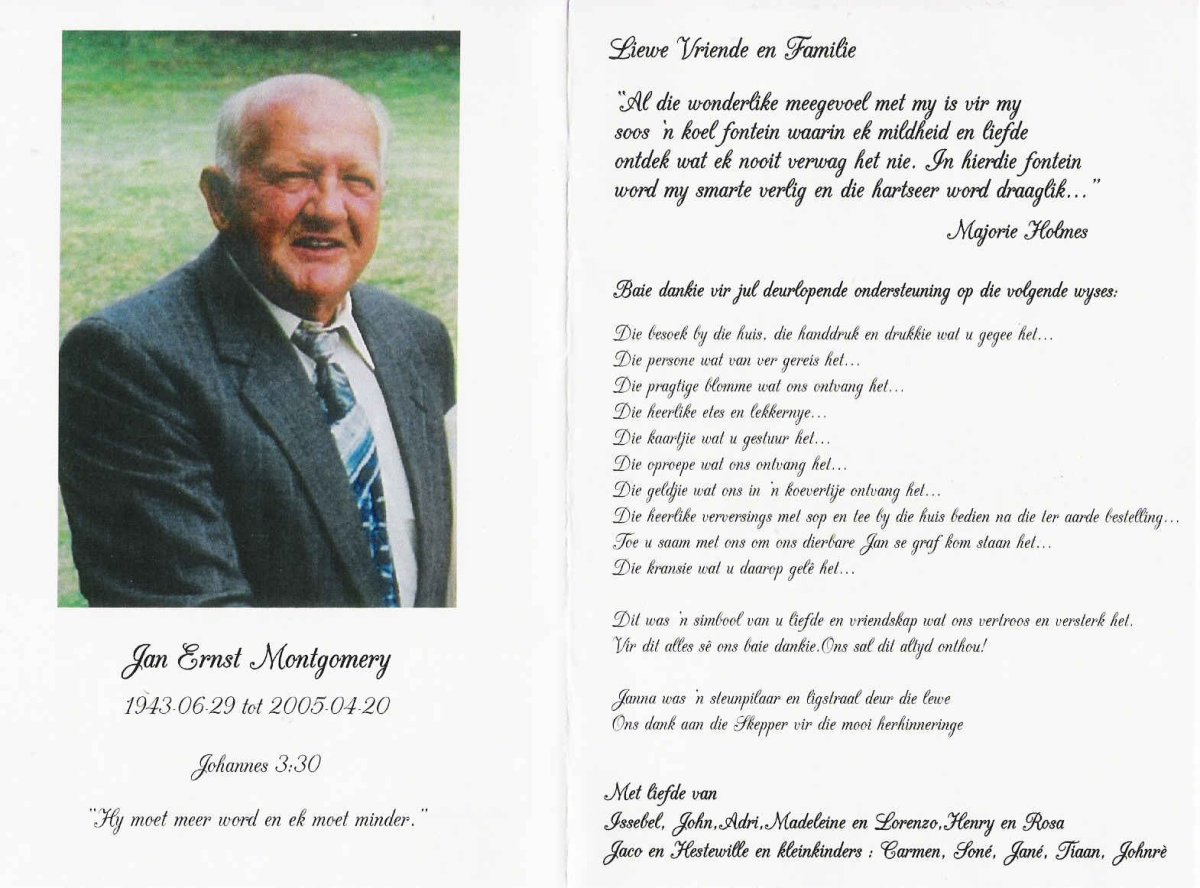 Jan Ernst Montgomery
1943-06-29 tot 2005-04-20
Johannes 3:30
"Hy moet meer word en ek moet minder."
Liewe Vriende en Familie
"Al die wonderlike meegevoel met my is vir my
soos 'n koel fontein waarin ek mildheid en liefde
ontdek wat ek nooit verwag het nie. In hierdie fontein
word my smarte verlig en die hartseer word draaglik..."
Majorie Holmes
Baie dankie vir jul deurlopende ondersteuning op die volgende wyses:
Die besoek by die huis, die handdruk en drukkie wat u gegee het...
Die persone wat van ver gereis het...
Die pragtige blomme wat ons ontvang het...
Die heerlike etes en lekkernye...
Die kaartjie wat u gestuur het...
Die oproepe wat ons ontvang het...
Die geldjie wat ons in 'n koevertije ontvang het...
Die heerlike verversings met sop en tee by die huis bedien na die ter aarde bestelling...
Toe u saam met ons om ons dierbare Jan se graf kom staan het...
Die kransie wat u daarop gelê het...
Dit was 'n simbool van u liefde en vriendskap wat ons vertroos en versterk het.
Vir dit alles sê ons baie dankie.Ons sal dit altyd onthou!
Janna was 'n steunpilaar en ligstraal deur die lewe
Ons dank aan die Skepper vir die mooi herhinneringe
Met liefde van
Issebel, John,Adri,Madeleine en Lorenzo,Henry en Rosa
Jaco en Hestewille en kleinkinders : Carmen, Soné, Jané, Tiaan, Johnrè